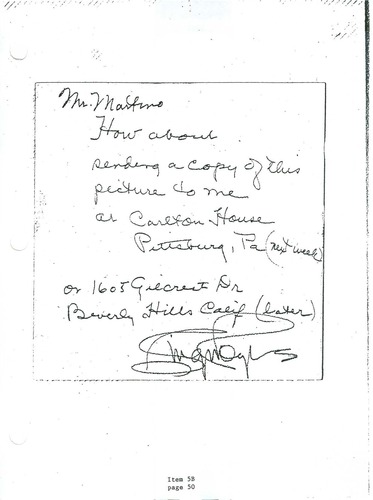 Mr. Martino
How about
sending a copy of this
picture to me
at Carlton House
Pittsburg, Pa (next week)
or 1605 Gilcrest Dr
Beverly Hills Calif (later)
Ginger Rogers
Item 5B
page 50